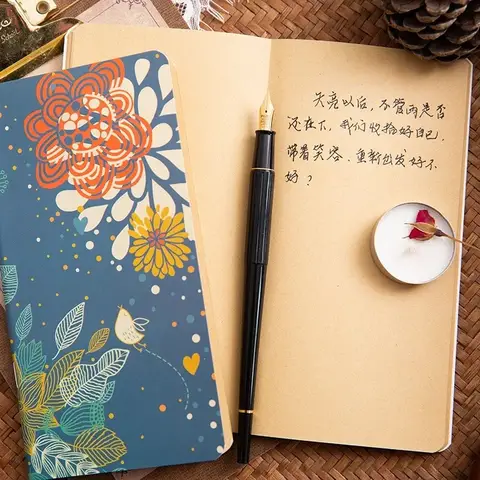 天亮以后，不管雨是否
还在下，我们收拾好自己，
带着笑容，重新出发好不
好？